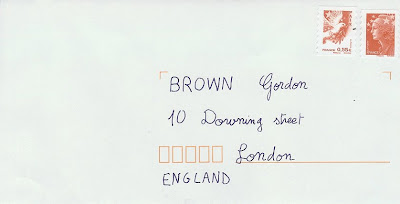 0,55€
BROWN Gordon
10 Downing street
London
ENGLAND